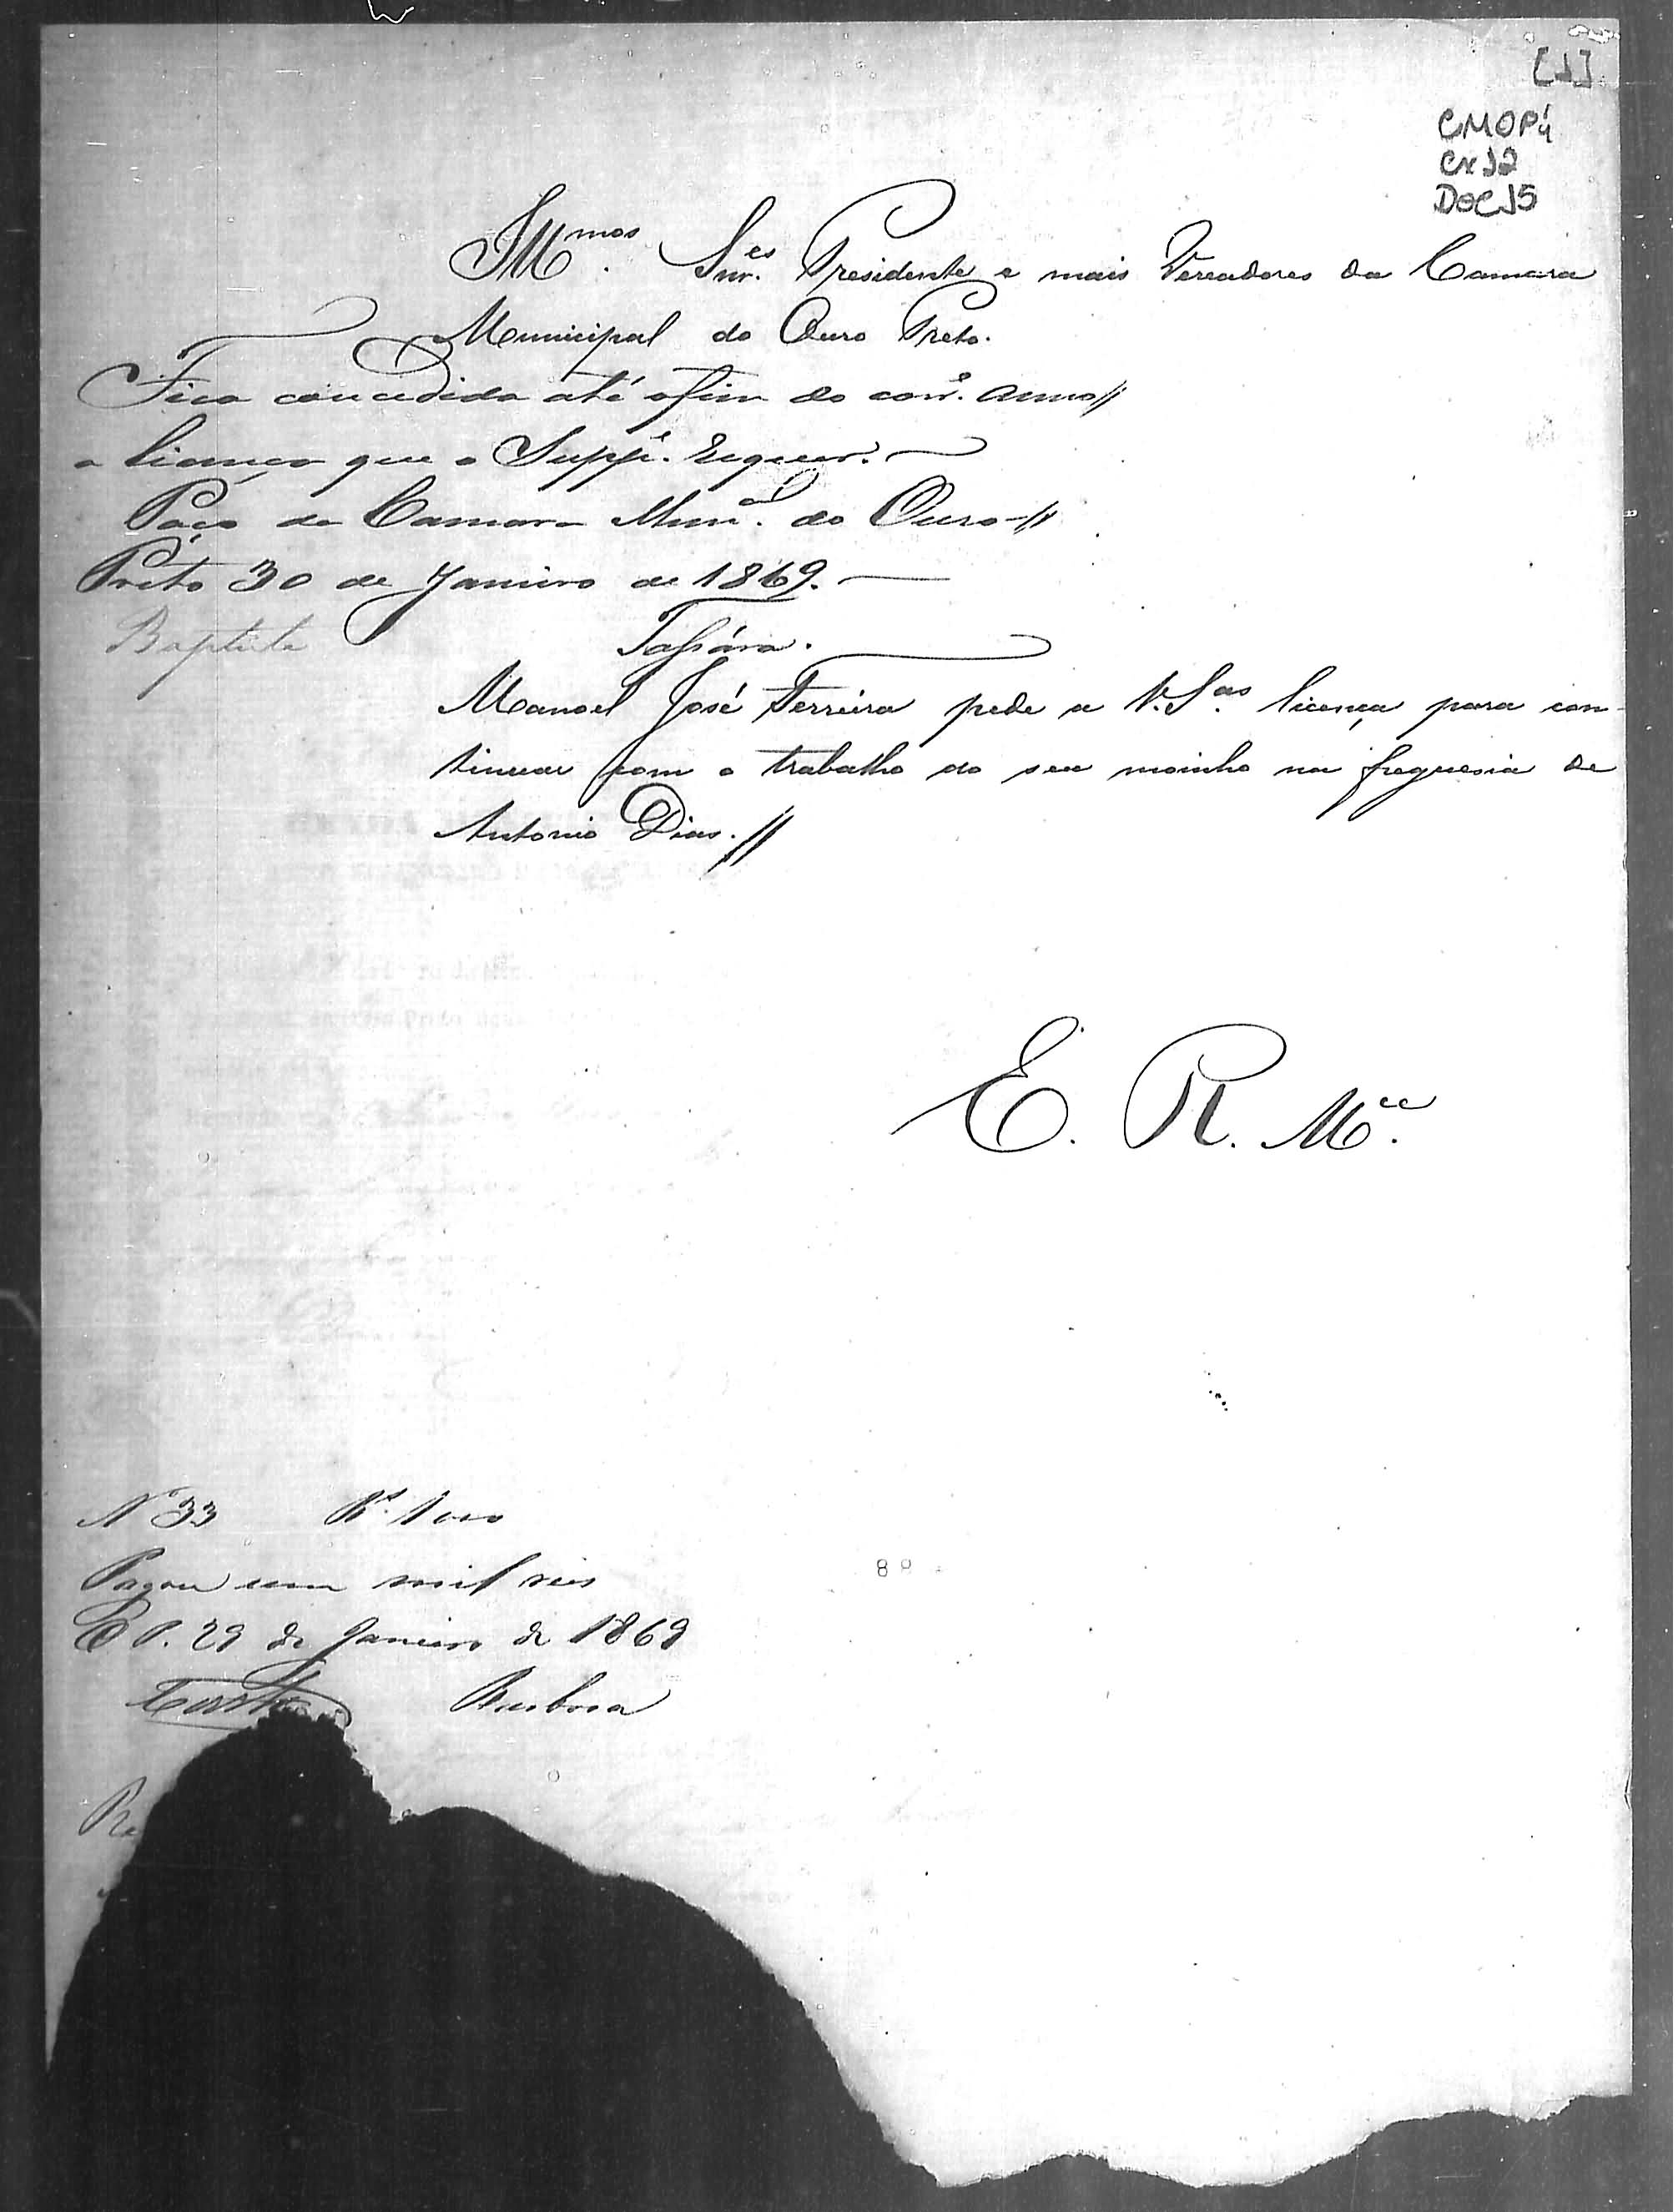 [1]
CMOP
Cx 12
DOC 15
Illmos. Snres. Presidente e mais Vereadores da Camara
Municipal do Ouro Preto.
Fica concedida até o fim do corre. anno//
a licença que o Suppe. requer.
Paço da Camara Munal. do Ouro-//
Preto 30 de Janeiro de 1869.
Baptista Tassára.
Manoel José Ferreira pede a V.Sas. licença para con-
tinuar com o trabalho do seu moinho na freguesia de
Antonio Dias.//
E. R. Mce.
No 33 Rs. 1000
Pagou um mil reis
O P. 29 de Janeiro de 1869
Costa Barbosa
Re